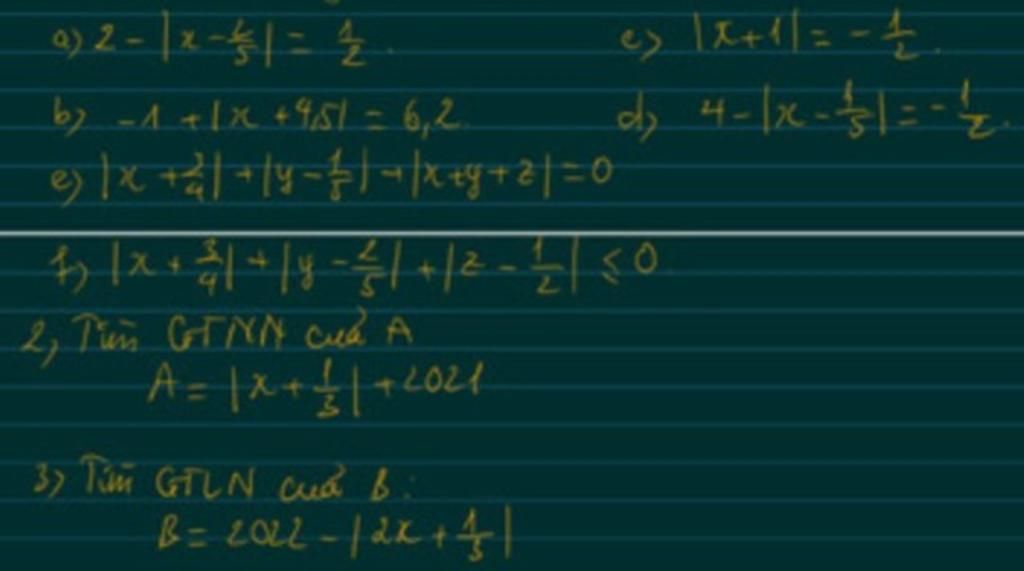 a) 2 - |x - 2/5| = 1/2.
c) |x + 1| = -1/2.
b) -1 + |x + 4,5| = 6,2.
d) 4 - |x - 1/5| = -1/2.
e) |x + 3/4| + |y - 1/5| + |x + y + z| = 0
f) |x + 3/4| + |y - 2/5| + |z - 1/2| ≤ 0
2, Tìm GTNN của A
A = |x + 1/3| + 2021
3) Tìm GTLN của B:
B = 2022 - |2x + 1/3|